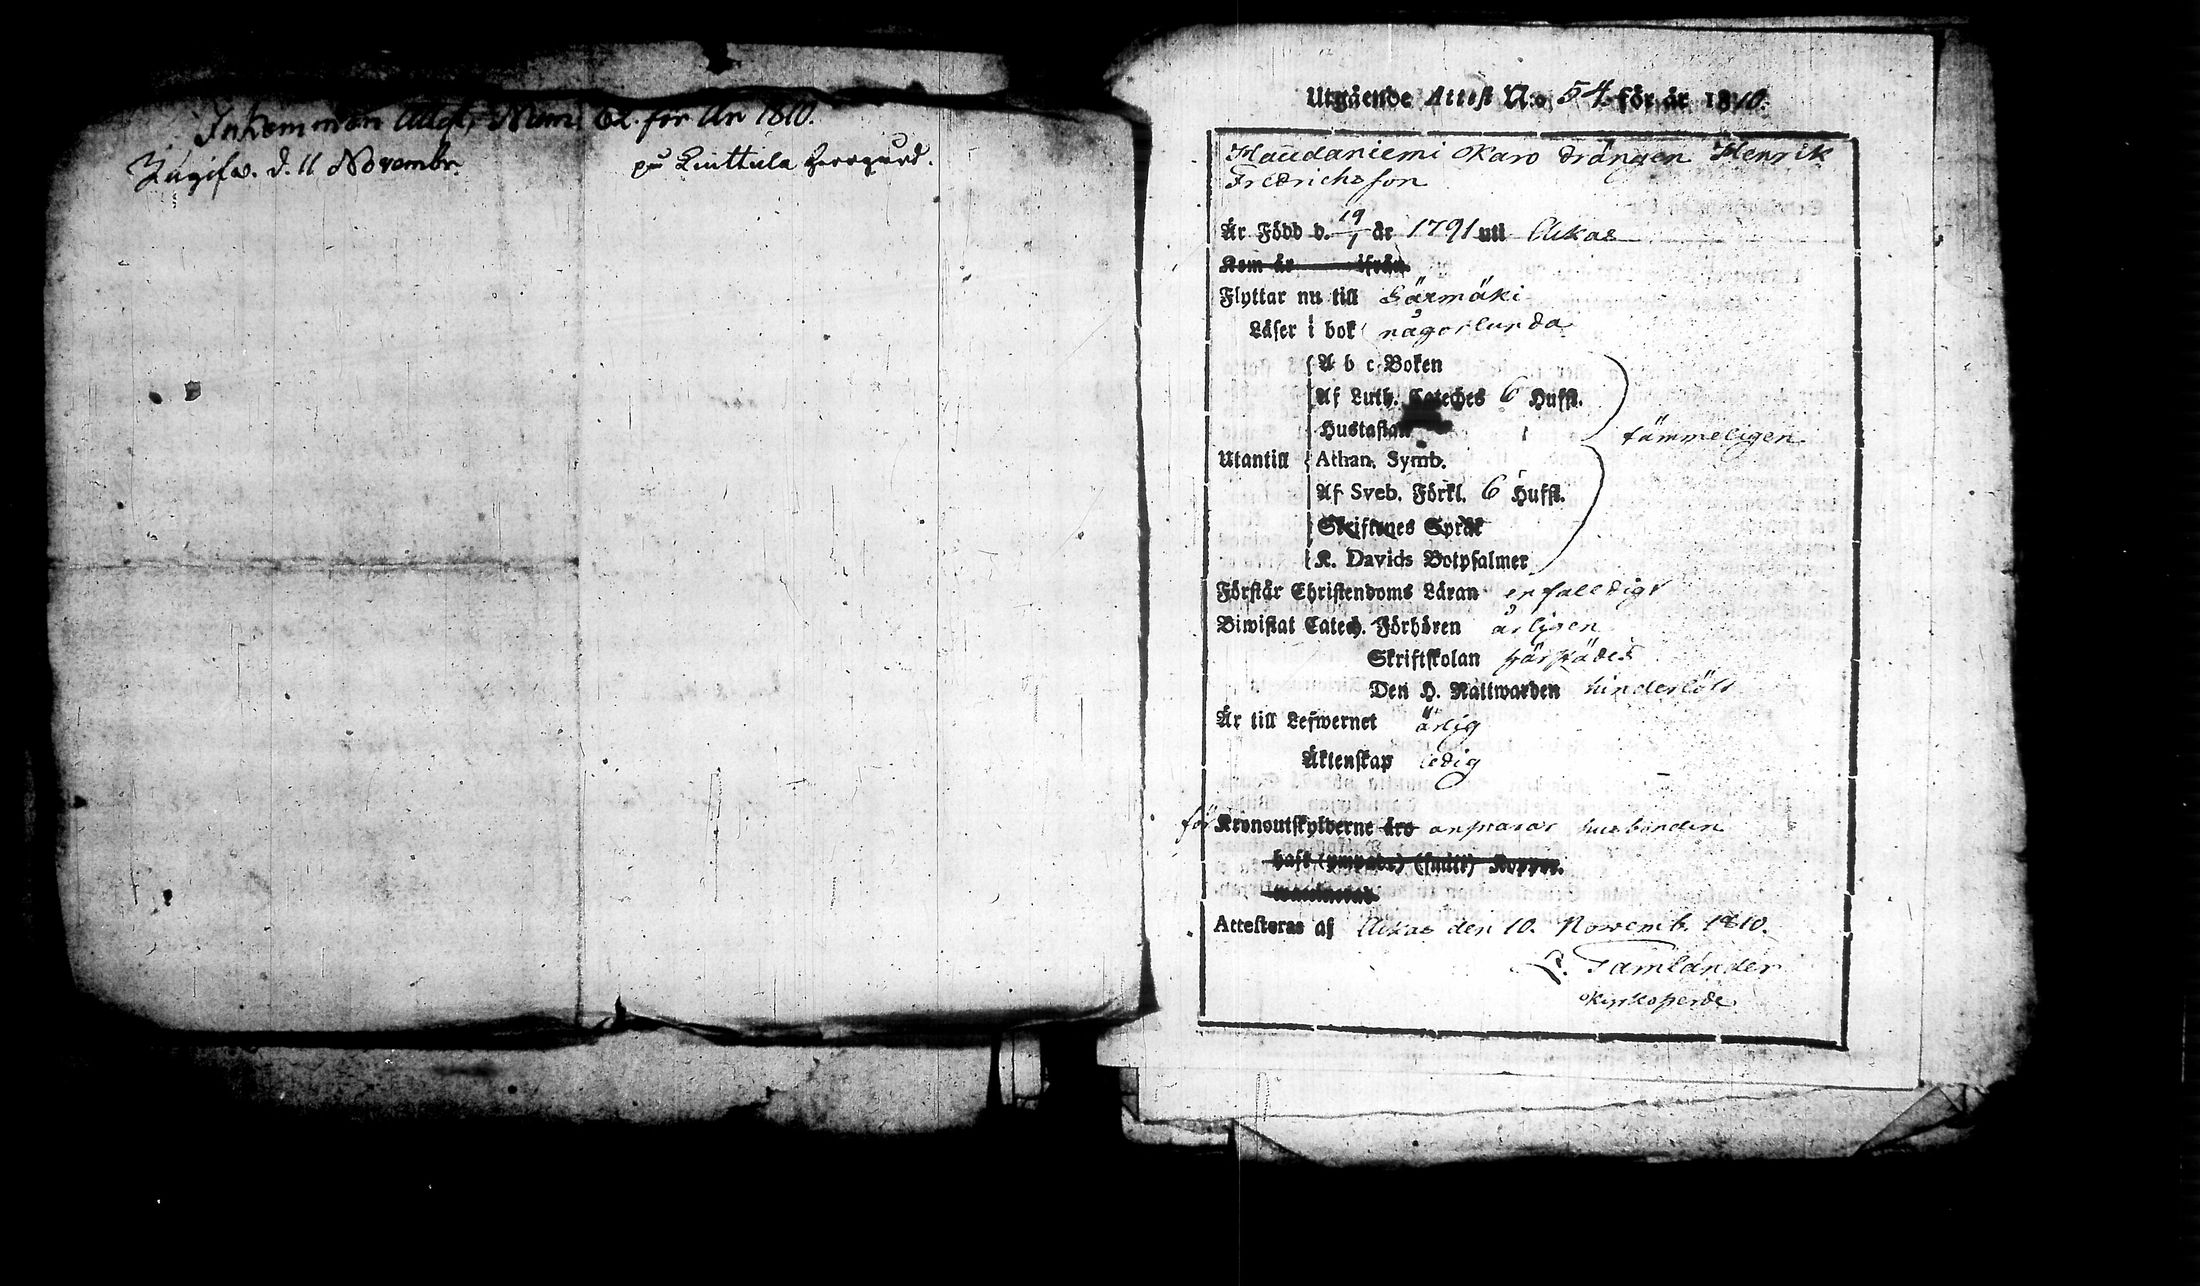 Inkommen Attest, Num. för År 1810.
d. 11 Novembr.
på Liuttula
Utgående Attest N:o 54 för år 1810.
Haudaniemi Okaro drängen Henrik
Fredrichsson
Är Född d. 19/1 år 1791 uti Ackas
Kom år ifrån
Flyttar nu till Särmäki
Läser i bok någorlunda
A b c Boken
Af Luth. Cateches 6 Huffst.
Hustaflan
tämmeligen
Utantill Athan. Symb.
Af Sveb. Förkl. 6 Huffst.
Skriftenes Språk
K. Davids Botpsalmer
Förstår Christendoms Läran enfalldigt
Biwistat Catech. Förhören årligen
Skriftskolan härstädes
Den H. Nattwarden hinderlöst
Är till Lefwernet ärlig
Äktenskap ledig
för Kronoutskylderne äro answarar husbonden
haft (ympade) (haft) Koppor.
Attesteras af Ackas den 10. Novemb. 1810.
Tamlander
Kyrkoherde